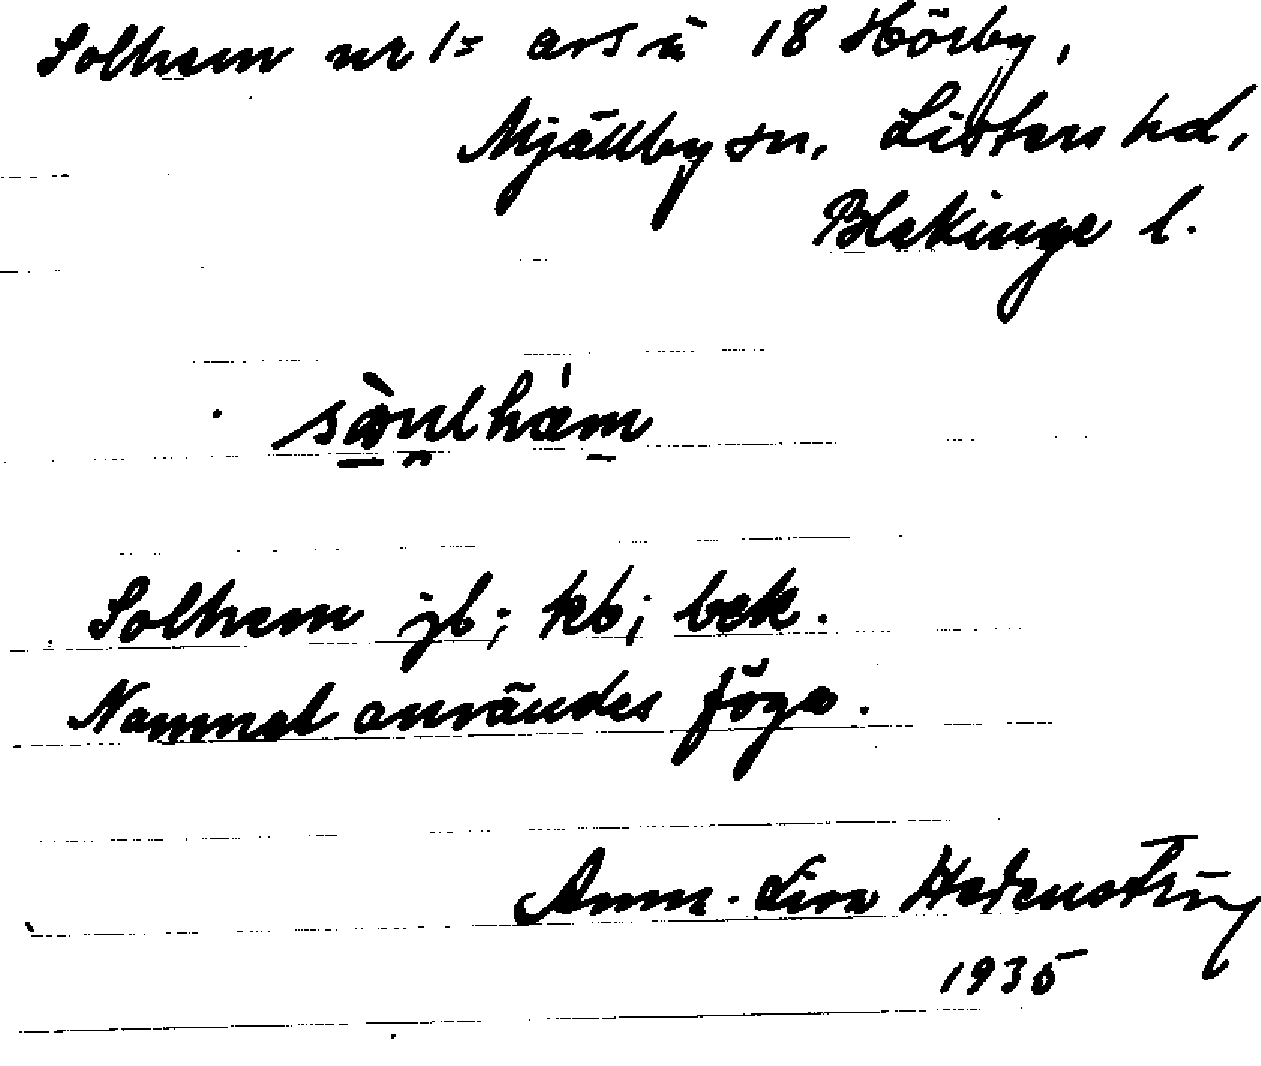 Solhem nr 1= avs å 18 Hörby,
Mjällby sn, Listers hd,
Blekinge l.
Solhem jb; kb; bek.
Namnet användes föga.
Anna-Lisa Hedenstierna
1935